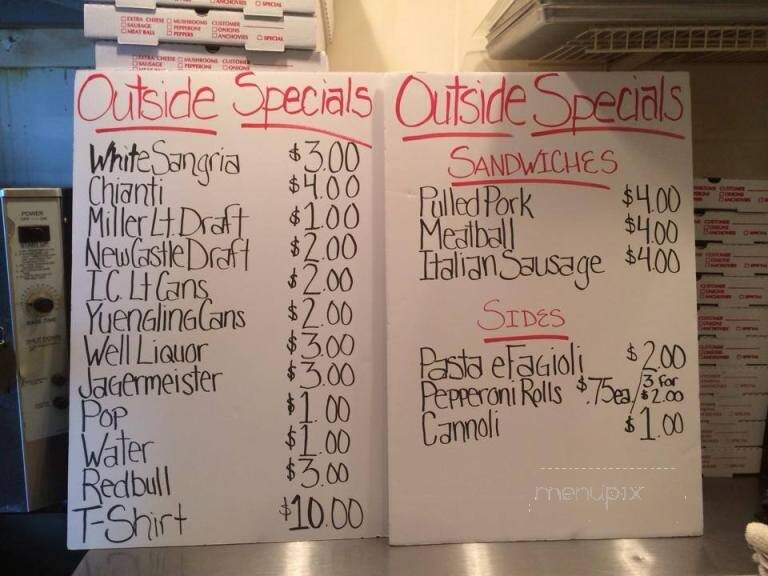 EXTRA CHEESE MUSHROOMS CUSTOMER
SAUSAGE PEPPERONI ONIONS
MEAT BALLS PEPPERS ANCHOVIES SPECIAL
EXTRA CHEESE MUSHROOMS CUSTOMER
SAUSAGE PEPPERONI ONIONS
Outside Specials
White Sangria $3.00
Chianti $4.00
Miller Lt Draft $1.00
NewCastle Draft $2.00
I.C. Lt Cans $2.00
Yuengling Cans $2.00
Well Liquor $3.00
Jagermeister $3.00
Pop $1.00
Water $1.00
Redbull $3.00
T-Shirt $10.00
Outside Specials
SANDWICHES
Pulled Pork $4.00
Meatball $4.00
Italian Sausage $4.00
SIDES
Pasta e Fagioli $2.00
Pepperoni Rolls $.75ea / 3 for $2.00
Cannoli $1.00
menupix
POWER